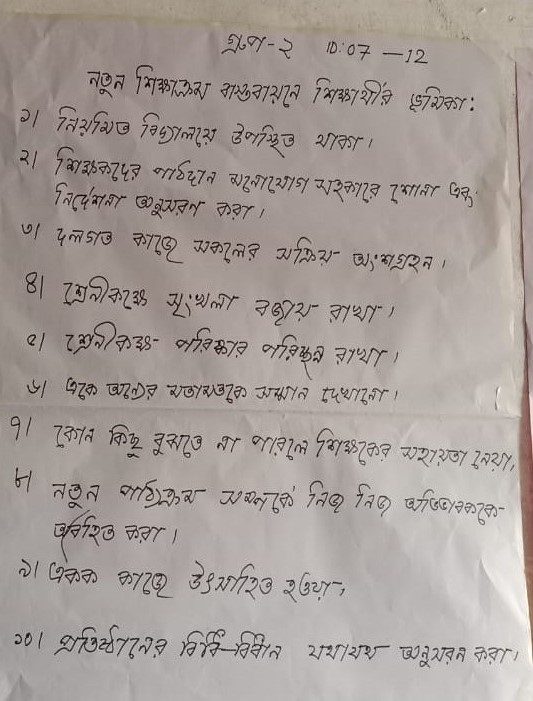 গ্রুপ-২ ID: 07 -12
নতুন শিক্ষাক্রম বাস্তবায়নে শিক্ষার্থীর ভূমিকা:
১। নিয়মিত বিদ্যালয়ে উপস্থিত থাকা।
২। শিক্ষকদের পাঠদান মনোযোগ সহকারে শোনা এবং
নির্দেশনা অনুসরণ করা।
৩। দলগত কাজে সকলের সক্রিয় অংশগ্রহন।
৪। শ্রেনীকক্ষে সৃংখলা বজায় রাখা।
৫। শ্রেনীকক্ষ পরিষ্কার পরিচ্ছন্ন রাখা।
৬। একে অন্যের মতামতকে সম্মান দেখানো।
৭। কোন কিছু বুঝতে না পারলে শিক্ষকের সহায়তা নেয়া।
৮। নতুন পাঠ্যক্রম সম্পর্কে নিজ নিজ অভিভাবককে
অবহিত করা।
৯। একক কাজে উৎসাহিত হওয়া।
১০। প্রতিষ্ঠানের বিধি-বিধান যথাযথ অনুসরন করা।